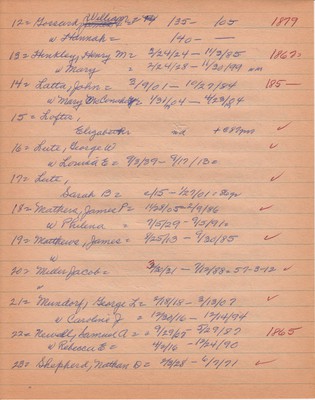 12 = Gossard, William = 135- 165 1879
w Hannah = 140 —
13 = Hinkley, Henry M = 3/24/24 - 11/3/85 1862?
w Mary = 2/24/28 - 11/30/99
14 = Latta, John = 3/9/01 - 10/27/84 185-
w Mary McConnel = 1/31/04 - 4/23/84
15 = Lofter,
Elizabeth = nd ✓
16 = Lute, George W ✓
w Louisa E = 7/3/39 - 9/17/13
17 = Lute, ✓
Sarah B = c/15 - 1/27/01
18 = Mathers, James P = 11/23/05 - 2/9/86 ✓
w Philena = 7/5/29 - 7/5/91
19 = Matthews, James = 4/25/13 - 7/30/85 ✓
w
20 = Miller Jacob = 3/31/31 - 7/12/88 = 57-3-12 ✓
"
21 = Musdorf, George L = 2/18/18 - 3/13/07 ✓
w Caroline J = 12/30/16 - 12/14/94
22 = Newell, Samuel A = 9/29/65 5/29/87 1865
w Rebecca E = 4/1/16 - 12/24/90
23 = Shepherd, Nathan D = 2/3/28 - 6/7/71 ✓